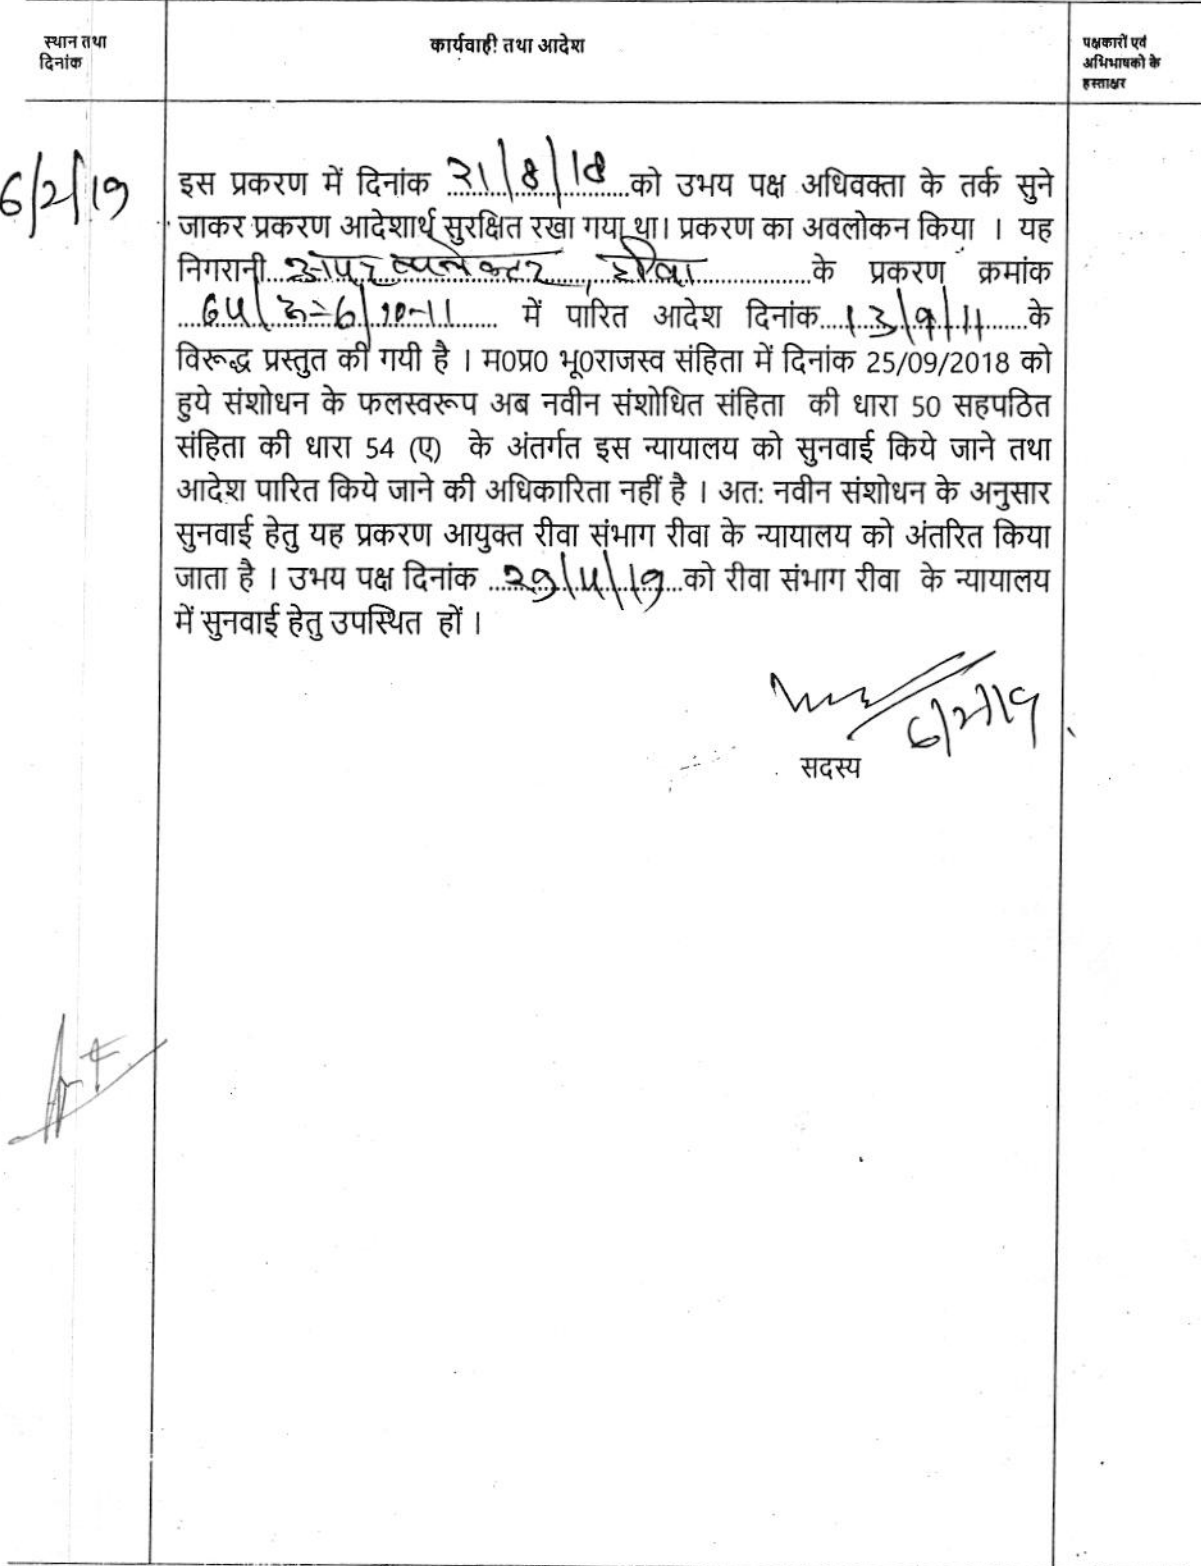 स्थान तथा
दिनांक
कार्यवाही तथा आदेश
पक्षकारों एवं
अभिभाषको के
हस्ताक्षर
6/2/19
इस प्रकरण में दिनांक 21/8/18 को उभय पक्ष अधिवक्ता के तर्क सुने
जाकर प्रकरण आदेशार्थ सुरक्षित रखा गया था। प्रकरण का अवलोकन किया । यह
निगरानी अपर कलेक्टर, रीवा के प्रकरण क्रमांक
/10-11 में पारित आदेश दिनांक 13/9/11 के
विरूद्ध प्रस्तुत की गयी है । म0प्र0 भू0राजस्व संहिता में दिनांक 25/09/2018 को
हुये संशोधन के फलस्वरूप अब नवीन संशोधित संहिता की धारा 50 सहपठित
संहिता की धारा 54 (ए) के अंतर्गत इस न्यायालय को सुनवाई किये जाने तथा
आदेश पारित किये जाने की अधिकारिता नहीं है । अत: नवीन संशोधन के अनुसार
सुनवाई हेतु यह प्रकरण आयुक्त रीवा संभाग रीवा के न्यायालय को अंतरित किया
जाता है । उभय पक्ष दिनांक 29/4/19 को रीवा संभाग रीवा के न्यायालय
में सुनवाई हेतु उपस्थित हों ।
6/2/19
सदस्य